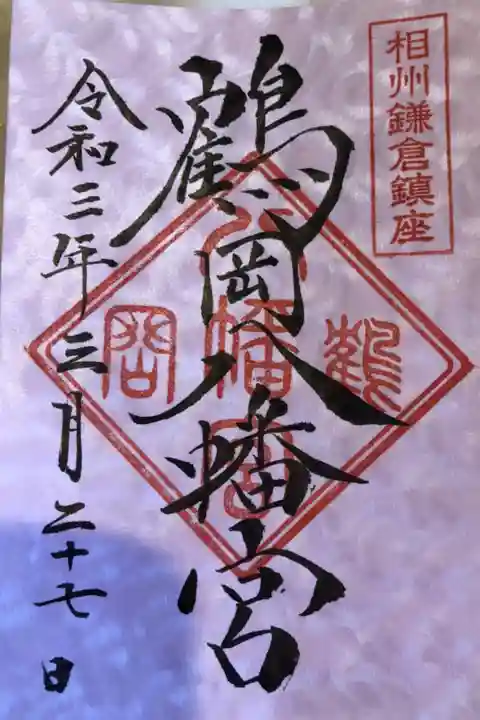 相州鎌倉鎮座
鶴岡八幡宮
鶴
八幡宮
岡
令和三年三月二十七日